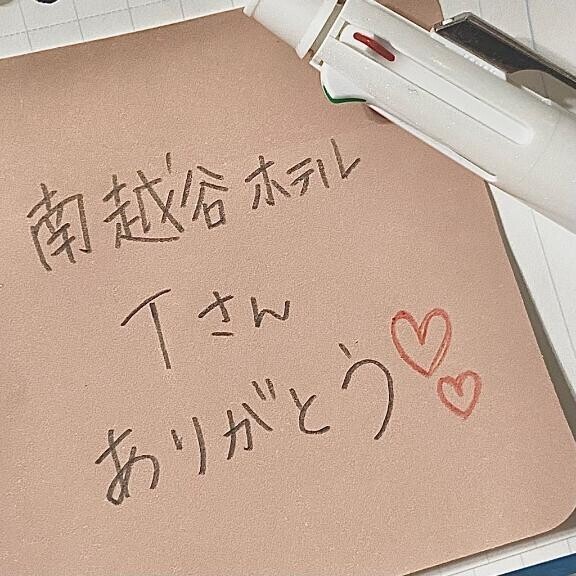 南越谷ホテル
Tさん
ありがとう♡♡